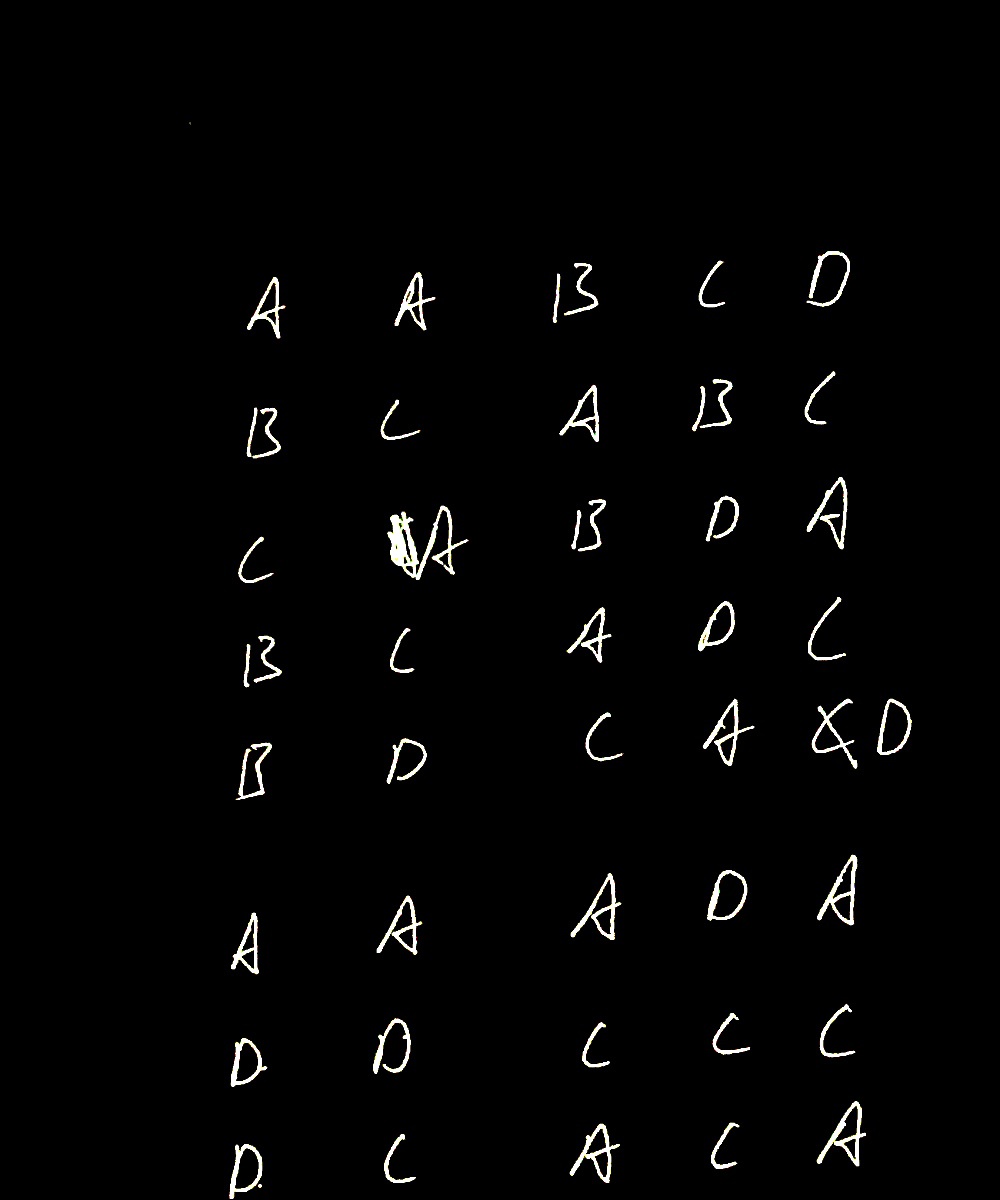 A A B C D
B C A B C
C A B D A
B C A D C
B D C A D
A A A D A
D D C C C
D C A C A